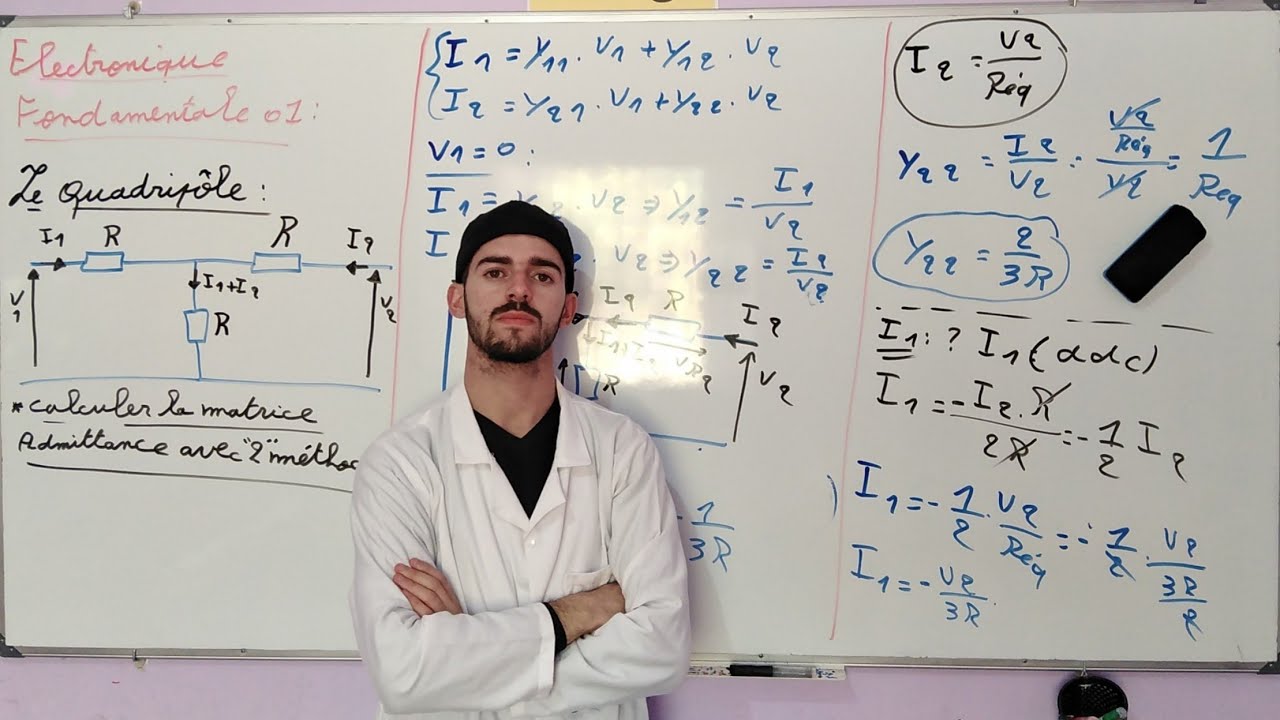 Electronique
Fondamentale 01:
Le quadripôle:
I1 R R I2
I1+I2
V1 R V2
*calculer la matrice
Admittance avec "2" métho
I1 = Y11 . V1 + Y12 . V2
I2 = Y21 . V1 + Y22 . V2
V1=0:
I1 = Y12 . V2 ⇒ Y12 = I1/V2
I . V2 ⇒ Y22 = I2/V2
I2 R I2
I1+I2 VR2
R V2
-1/3R
I2 = V2/Réq
Y22 = I2/V2 = (V2/Réq)/V2 = 1/Req
Y22 = 2/3R
I1:? I1(ddc)
I1 = -I2.R/2R = -1/2 I2
I1 = -1/2 . V2/Réq = -1/2 . V2/(3R/2)
I1 = -V2/3R